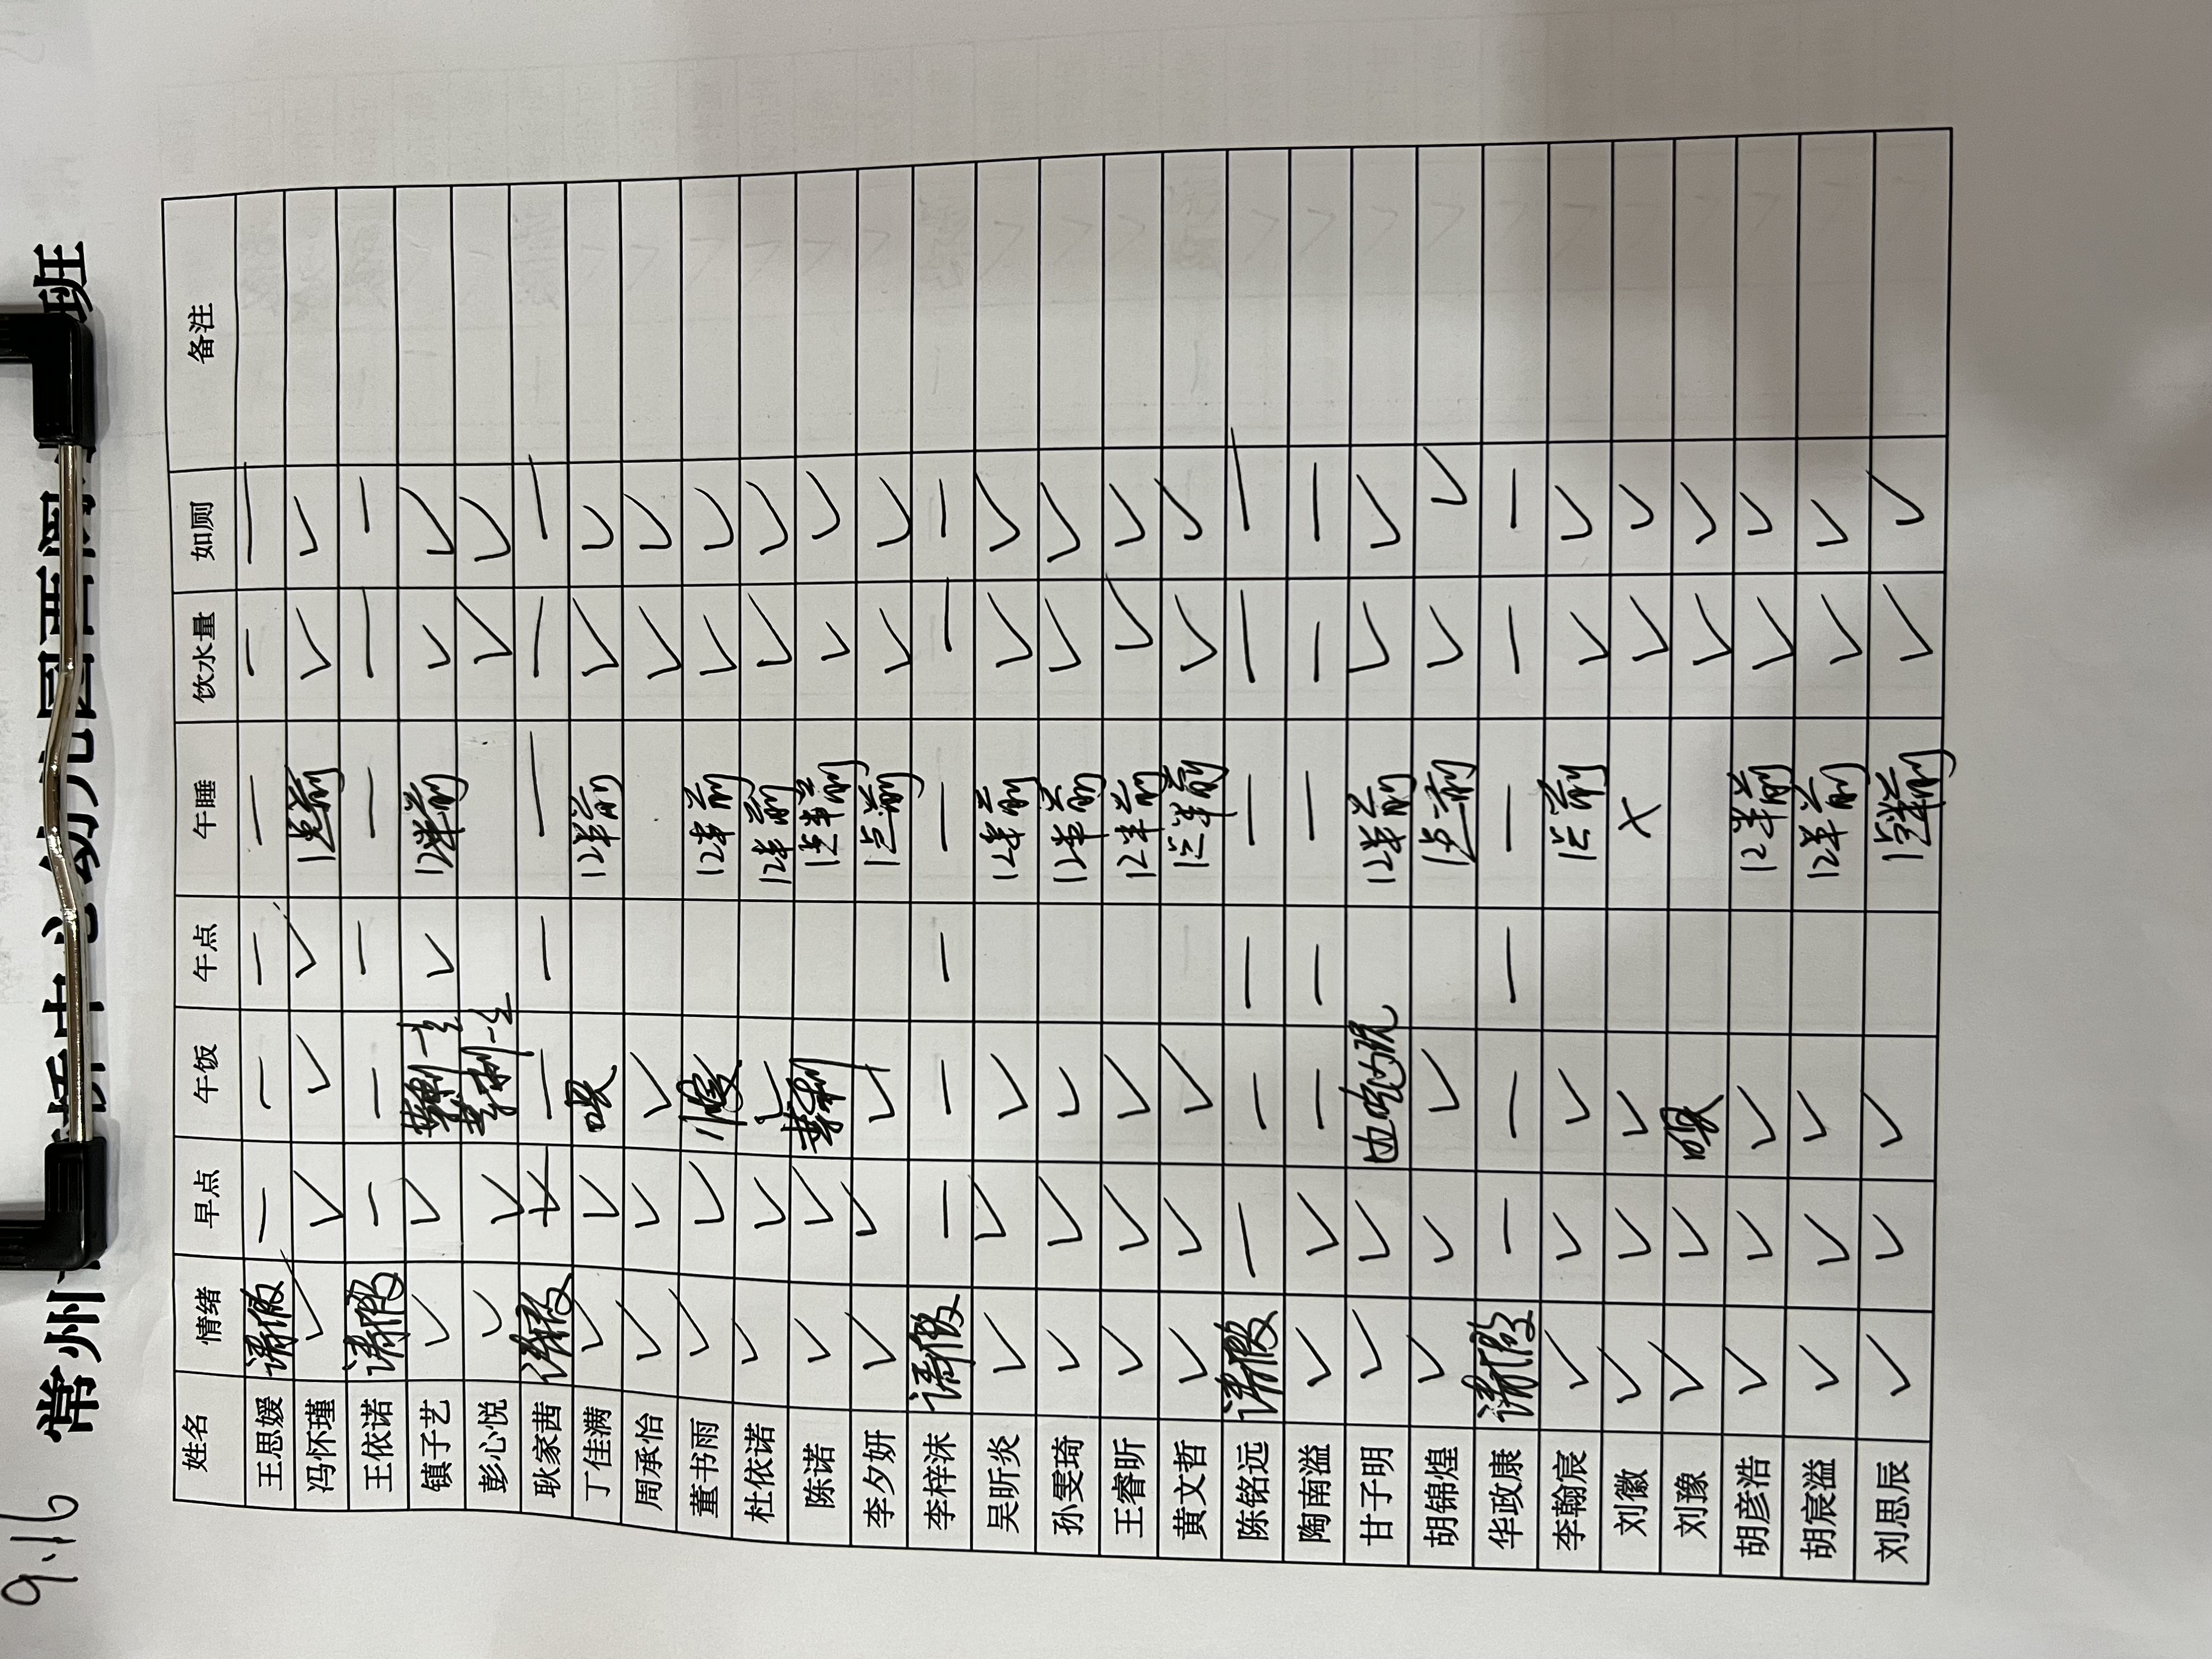 9.16 常州 中心幼儿园西阁 班
姓名 情绪 早点 午饭 午点 午睡 饮水量 如厕 备注
王思媛 请假 — — — — — —
冯怀瑾 ✓ ✓ ✓ ✓ 1点前 ✓ ✓
王依诺 请假 — — — — — —
镇子艺 ✓ ✓ ✓ 12半前 ✓ ✓
彭心悦 ✓ ✓ ✓ ✓
耿家茜 请假 — — — — —
丁佳满 ✓ ✓ 喂 12半前 ✓ ✓
周承怡 ✓ ✓ ✓ ✓ ✓
董书雨 ✓ ✓ 慢 12半前 ✓ ✓
杜依诺 ✓ ✓ ✓ 12半前 ✓ ✓
陈诺 ✓ ✓ 1点半前 ✓ ✓
李夕妍 ✓ ✓ ✓ 1点前 ✓ ✓
李梓沫 请假 — — — — — —
吴昕炎 ✓ ✓ ✓ 12半前 ✓ ✓
孙雯琦 ✓ ✓ ✓ 12半前 ✓ ✓
王睿昕 ✓ ✓ ✓ 12半前 ✓ ✓
黄文哲 ✓ ✓ ✓ 1点半前 ✓ ✓
陈铭远 请假 — — — — — —
陶南溢 ✓ ✓ — — — — —
甘子明 ✓ ✓ 边吃边玩 12半前 ✓ ✓
胡锦煌 ✓ ✓ ✓ 1点前 ✓ ✓
华政康 请假 — — — — — —
李翰宸 ✓ ✓ ✓ 1点前 ✓ ✓
刘徽 ✓ ✓ ✓ × ✓ ✓
刘豫 ✓ ✓ 喂 ✓ ✓
胡彦浩 ✓ ✓ ✓ 12半前 ✓ ✓
胡宸溢 ✓ ✓ ✓ 12半前 ✓ ✓
刘思辰 ✓ ✓ ✓ 1点半前 ✓ ✓